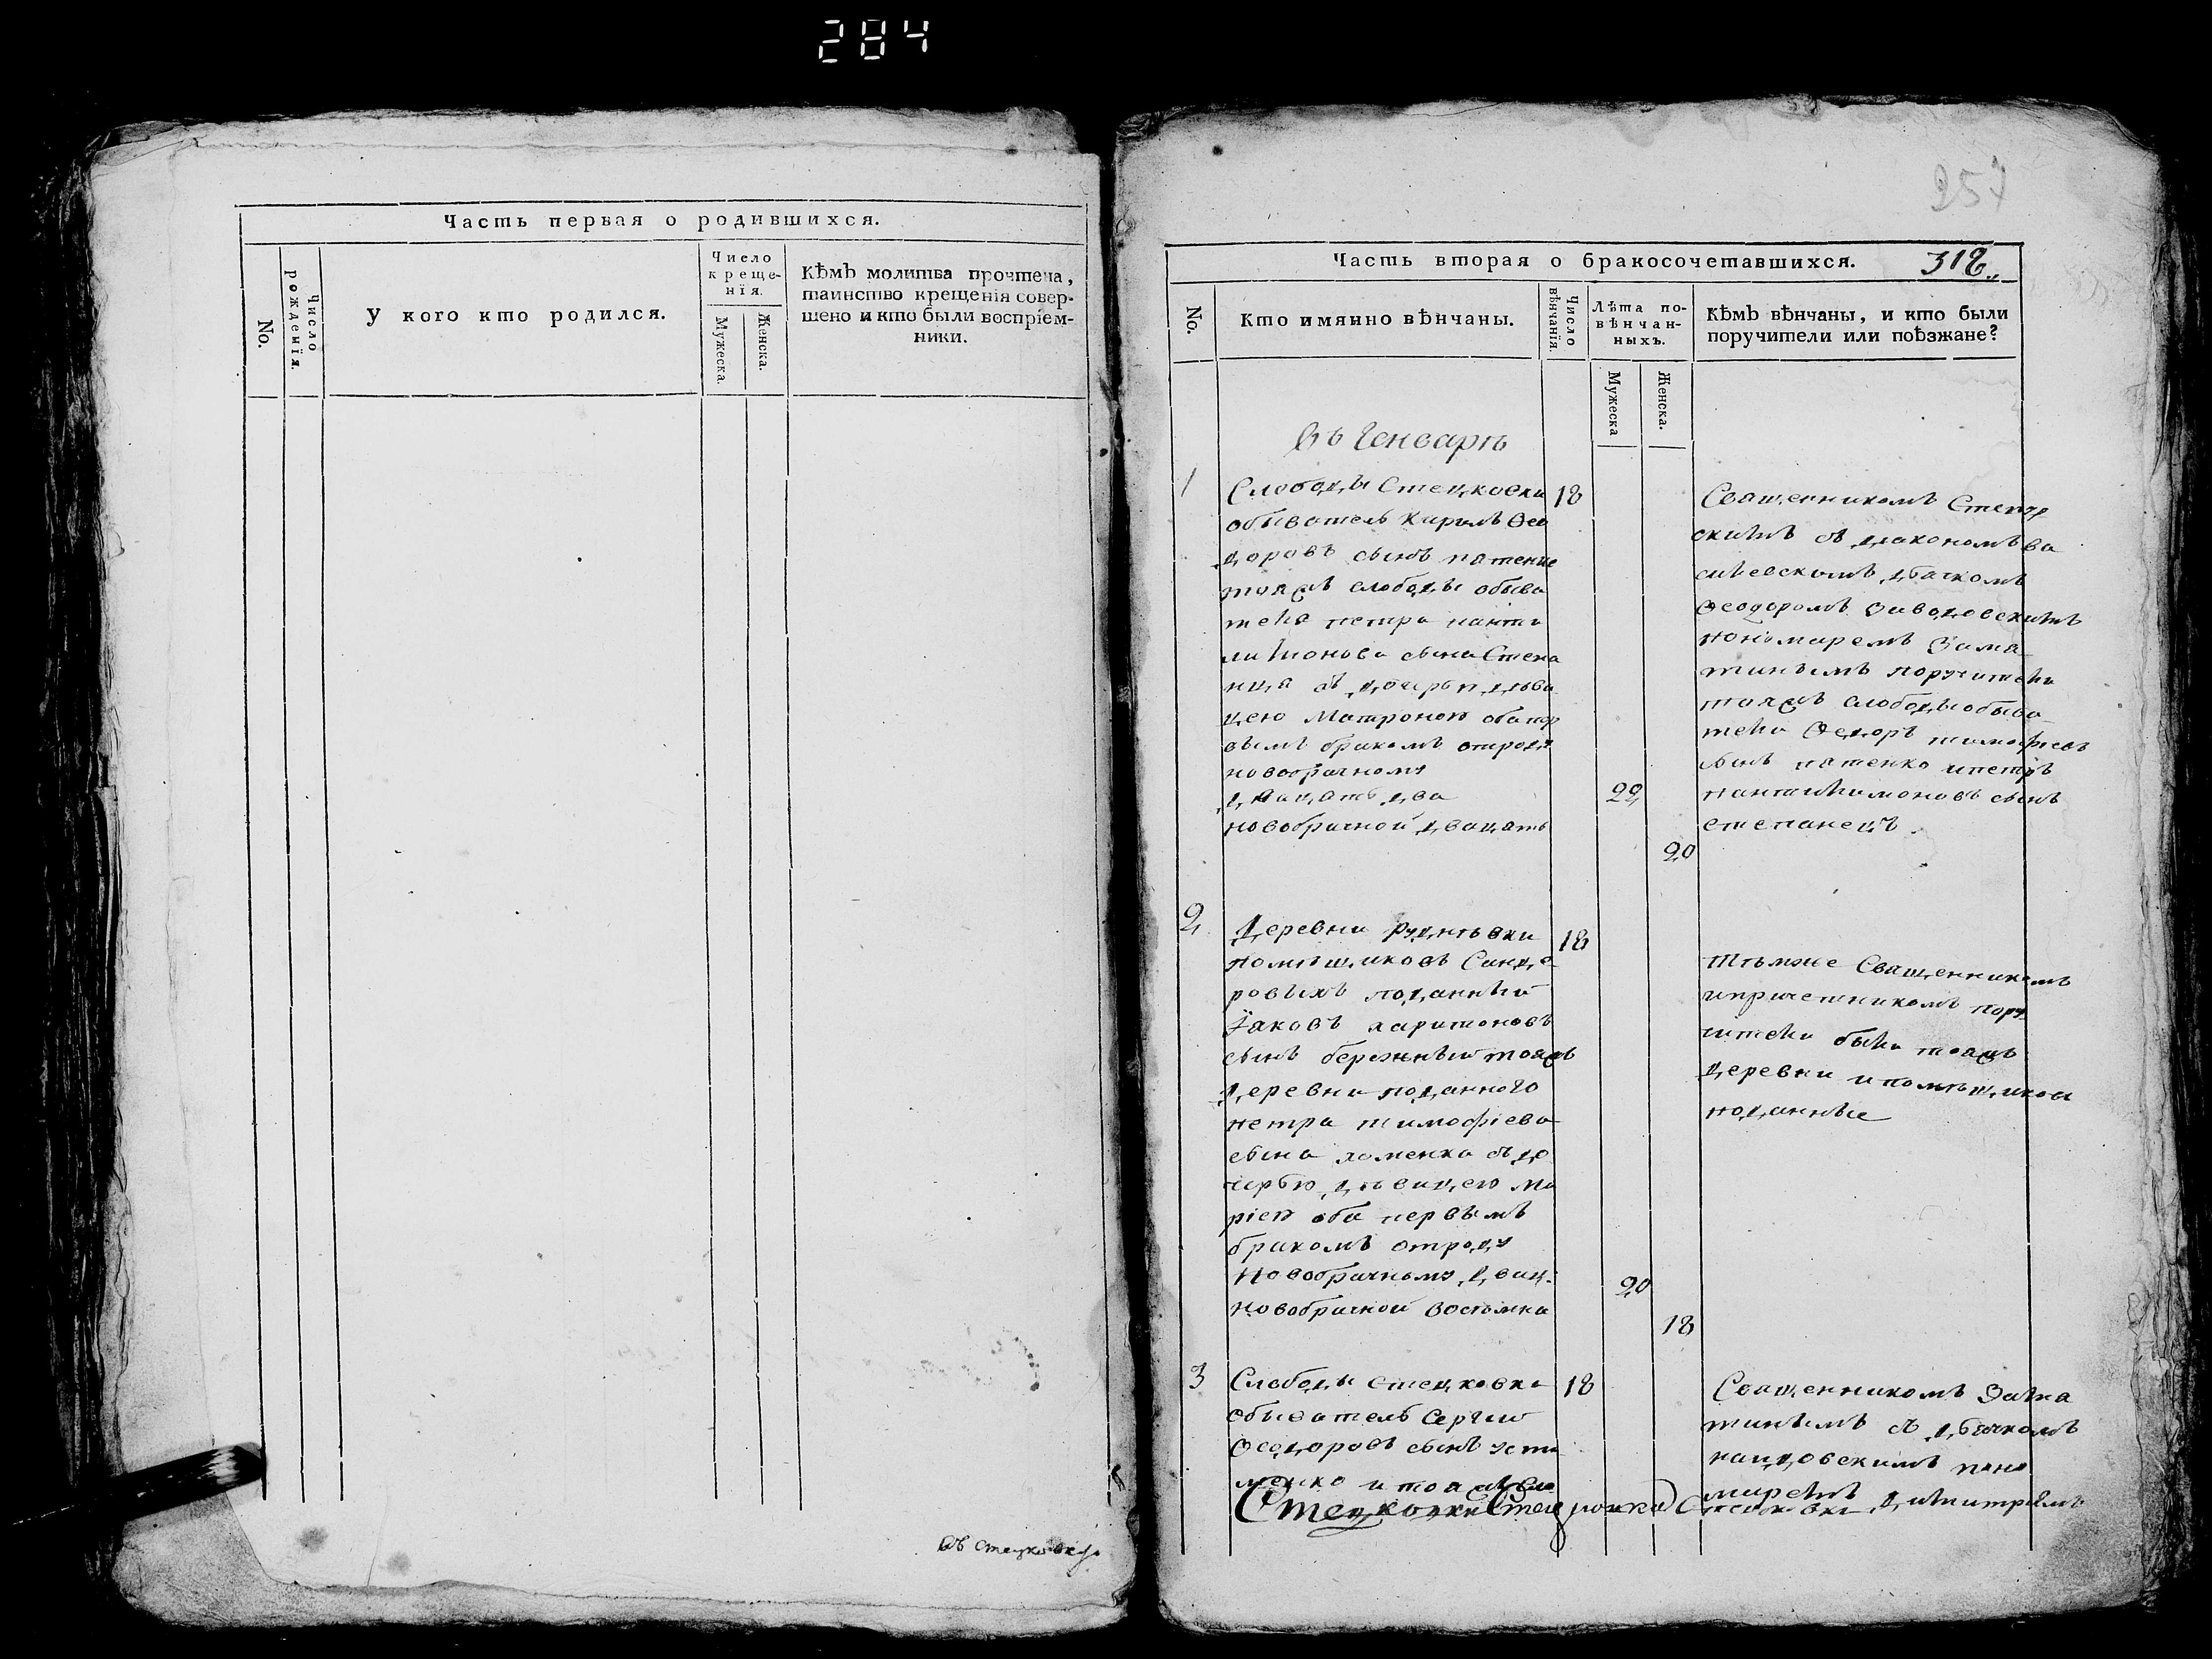 284
Часть первая о родившихся.
No.
Число рожденїя.
У кого кто родился.
Число креще-
нїя.
Мужеска.
Женска.
Кѣмъ молитва прочтена,
таинство крещенія совер-
шено и кто были воспріем-
ники.
въ Стецковку
257
Часть вторая о бракосочетавшихся. 318
No.
Кто имянно вѣнчаны.
Число вѣнчанїя.
Лѣта по-
вѣнчан-
ныхъ.
Мужеска
Женска.
Кѣмъ вѣнчаны, и кто были
поручители или поѣзжане?
въ Генварѣ
1 Слободы Стецковки 18
обыватель Кирилъ Ѳео
доровъ сынъ патенко
тояжъ слободы обыва
теля петра панти
лиимонова сына Степа
нца съ дочерью дѣви
цею Матроною оба пер
вымъ бракомъ отроду
новобрачному
двацать два 22
новобрачной двацать
20
Священникомъ
скимъ съ диакономъ ва
силевскимъ дьячкомъ
Ѳеодоромъ Заводовскимъ
пономаремъ Замя
тинымъ поручители
тояжъ слободы обыва
тели Ѳедоръ тимофіевъ
сынъ патенко ипетръ
пантилимоновъ сынъ
степанецъ.
2 Деревни Руднѣвки 18
помѣщиковъ
ровыхъ поданный
Їаковъ харитоновъ
сынъ бережный тояжъ
деревни поданного
петра тимофіева
сына хоменка съ до
черью дѣвицею Ма
ріею оба первымъ
бракомъ отроду
Новобрачному двац: 20
новобрачной восѣмна
18
тѣмже Священникомъ
ипричетникомъ пору
чители были тояжъ
деревни ипомѣщиковъ
поданные
3 Слободы стецковки 18
обыватель Сергий
Ѳеодоровъ сынъ усти
менко и тояжъ сло
Священникомъ Замя
тинымъ съ дьячкомъ
пано
маремъ Димитріемъ
Стецковки